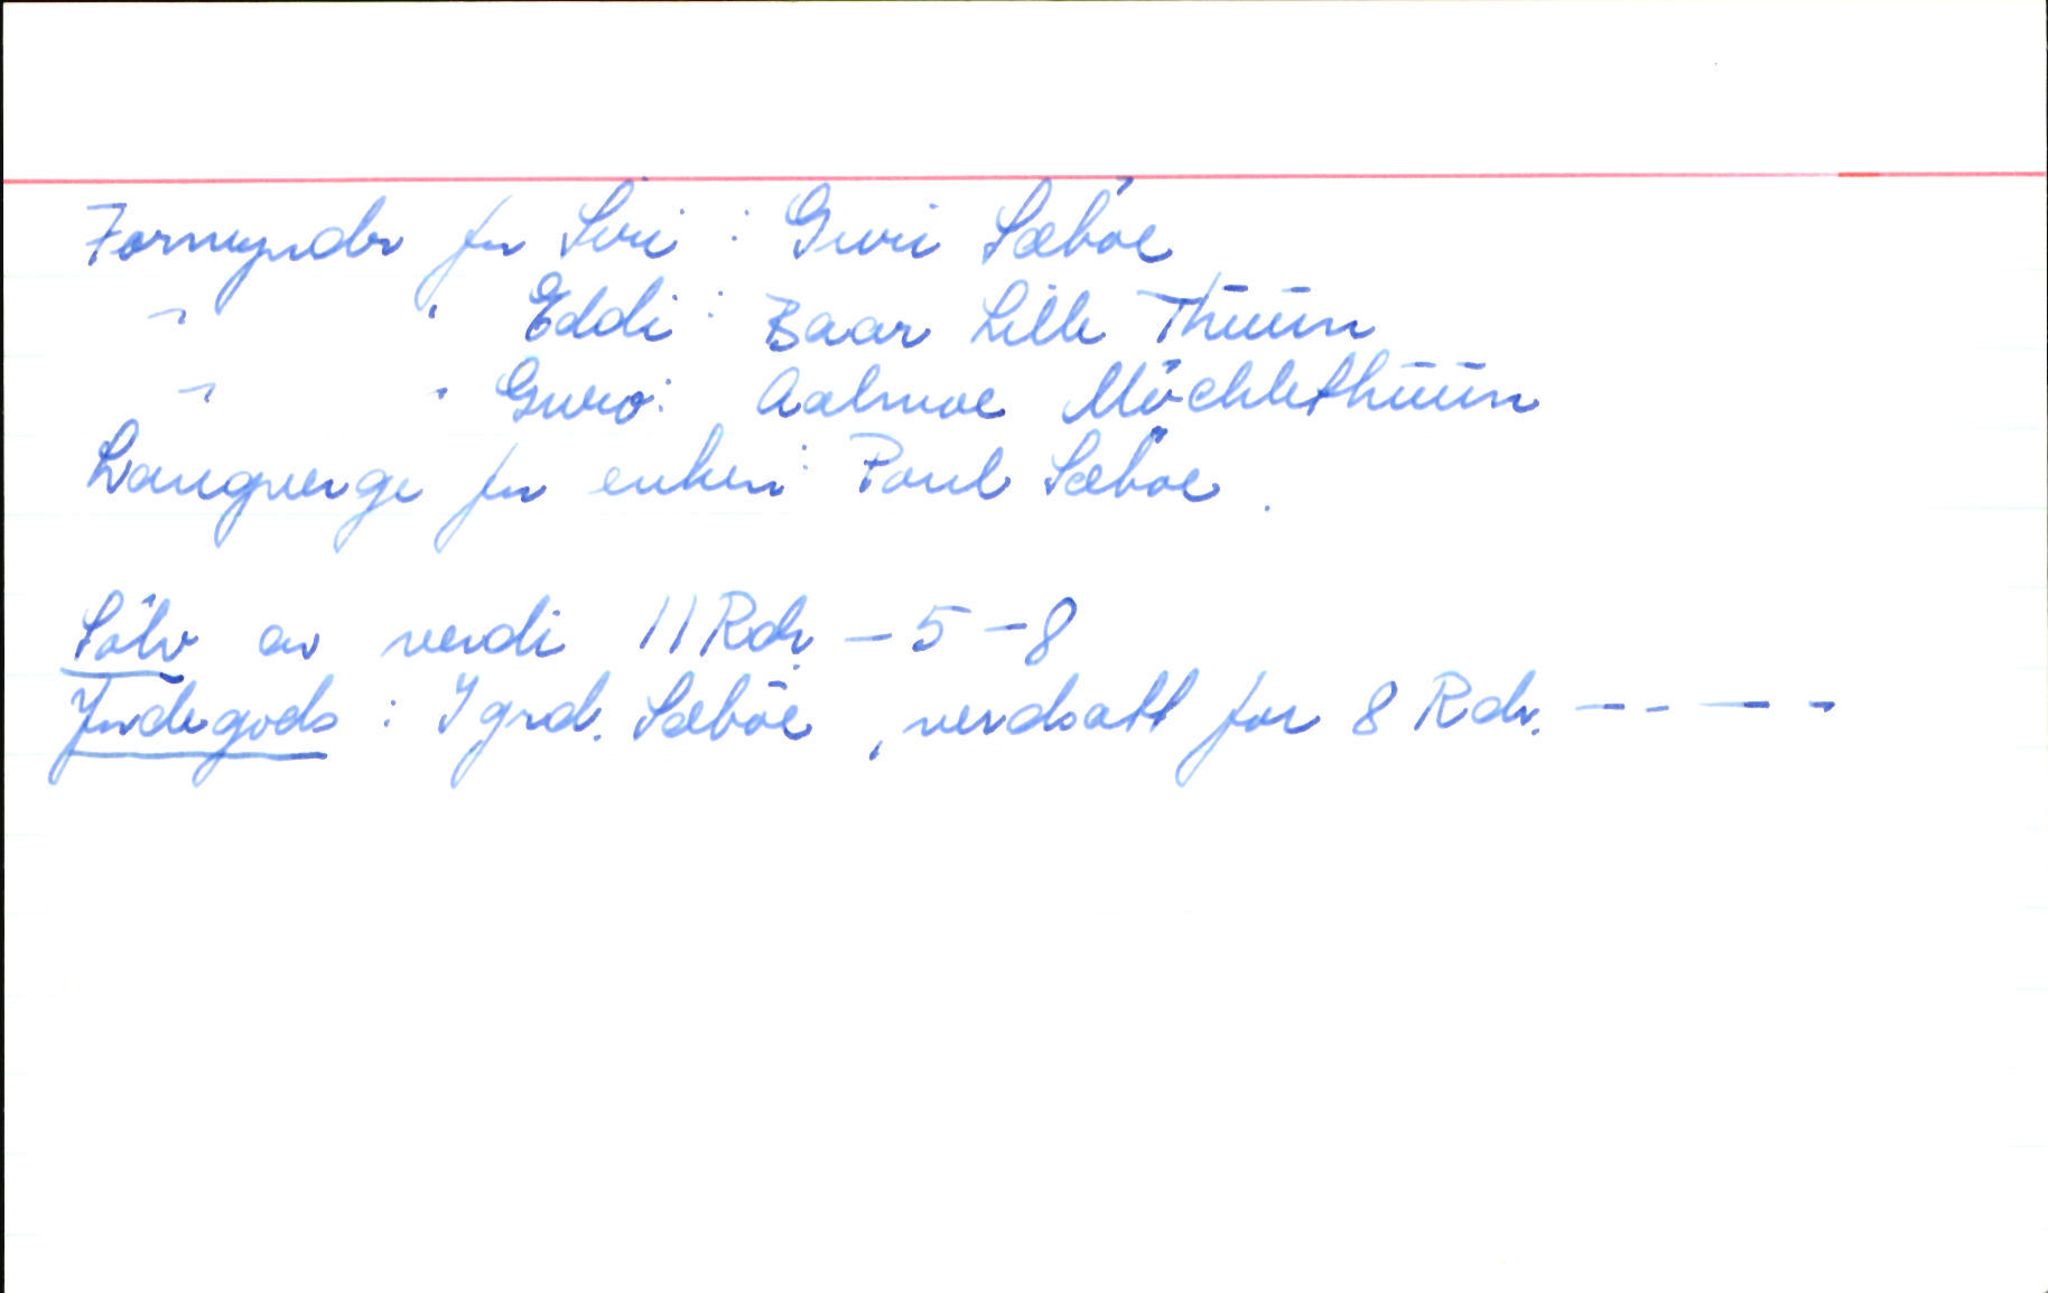 Formynder for Siri : Guri Sæböe
" " Eddi : Baar Lille Thuun
" " Guro : Aalmoe Möchlethuun
Laugverge for enken : Poul Sæböe .
Sölv av verdi 11 Rdr. - 5 - 8
Jndegods : I grd. Sæböe , verdsatt for 8 Rdr. - - - -